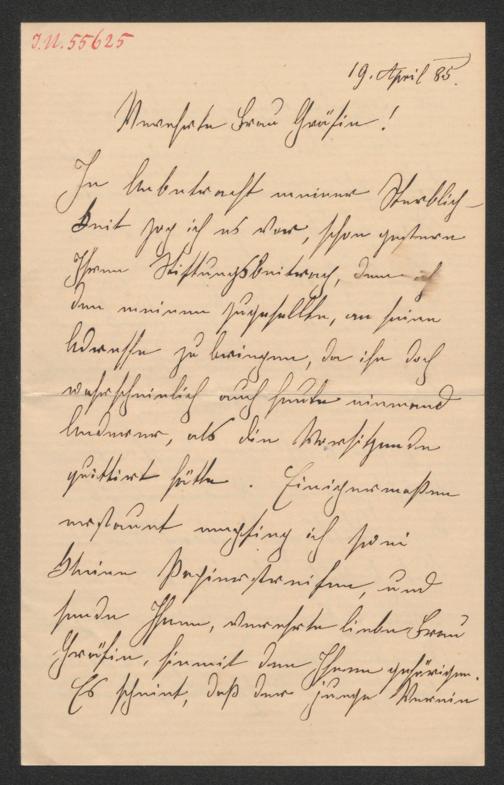 J.N. 55625
19. April 85.
Verehrte Frau Gräfin!
In Anbetracht meiner Sterblich-
keit zog ich es vor, schon gestern
Ihren Stiftungsbeitrag, dem ich
den meinen zugesellte, an seine
Adresse zu bringen, da ihn doch
wahrscheinlich auch heute niemand
Anderer, als die Vorsitzende
quittirt hätte. Einigermaßen
erstaunt empfing ich zwei
kleine Papierstreifen, und
sende Ihnen, verehrte liebe Frau
Gräfin, hiemit den Ihnen gehörigen.
Es scheint, daß der junge Verein